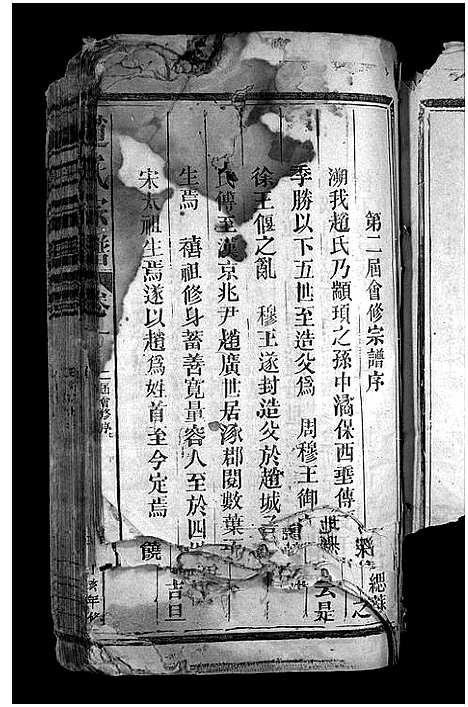 第二屆會修宗譜序
溯我趙氏乃顓頊之孫中潏保西垂傳
季勝以下五世至造父爲 周穆王御
徐王偃之亂 穆王遂封造父於趙城
氏傳至漢京兆尹趙廣世居涿郡閱數葉
生焉 禧祖修身蓄善寬量容人至於四
宋太祖生焉遂以趙爲姓首至今定焉
趙氏宗譜 卷
二屆會修序
之
云是
吉旦
饒
年修